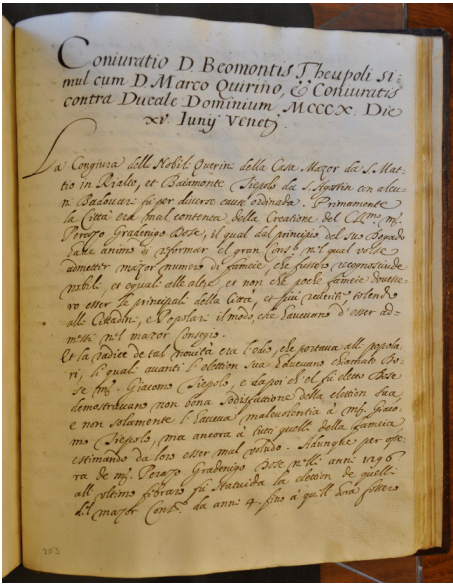 Coniuratio D. Beomontis Theupoli si=
mul cum D. Marco Quirino, & Coniuratis
contra Ducale Dominium MCCCX. Die
xv. Iunij Venet.
La Congiura delli Nobili Querini della Casa Mazor da S. Mat=
tio in Rialto, et Baiamonte Tiepolo da S. Agustin con alcu=
ni Badoueri fù per diuerse cause ordinata. Primamente
la Città era mal contenta della Creatione del
Perazo Gradenigo Dose, il qual dal principio del suo Dogado
have animo di reformar el gran Conso nel qual volse
admetter mazor numero di fameie, che fussero
nobili, et equali alle altre, et non che poche fameie douesse=
ro esser le principali della Città, et più tolendo
alli Cittadini, e Popolari il modo, che haueuano d'esser ad=
messi nel mazor Consegio.
Et la radice de tal nouità era l'odio, che portaua alli popola=
ri, li quali auanti l'elettion sua haueuano chiamato Do=
se mr. Giacomo Tiepolo, e dapoi ch'el fù eletto Dose
demostrauano non bona sodisfattione della elettion sua,
e non solamente l'haueua maleuolentia à mr. Giaco=
mo Tiepolo, ma ancora à tutti quelli della fameia
estimando da loro esser mal voludo. Adunque per ope=
ra de mr. Perazo Gradenigo Dose nelli anni 1296
all' vltimo fibraro fù statuida la elettion de quelli
del mazor Conso. da anni 4. fino à quell' hora
203